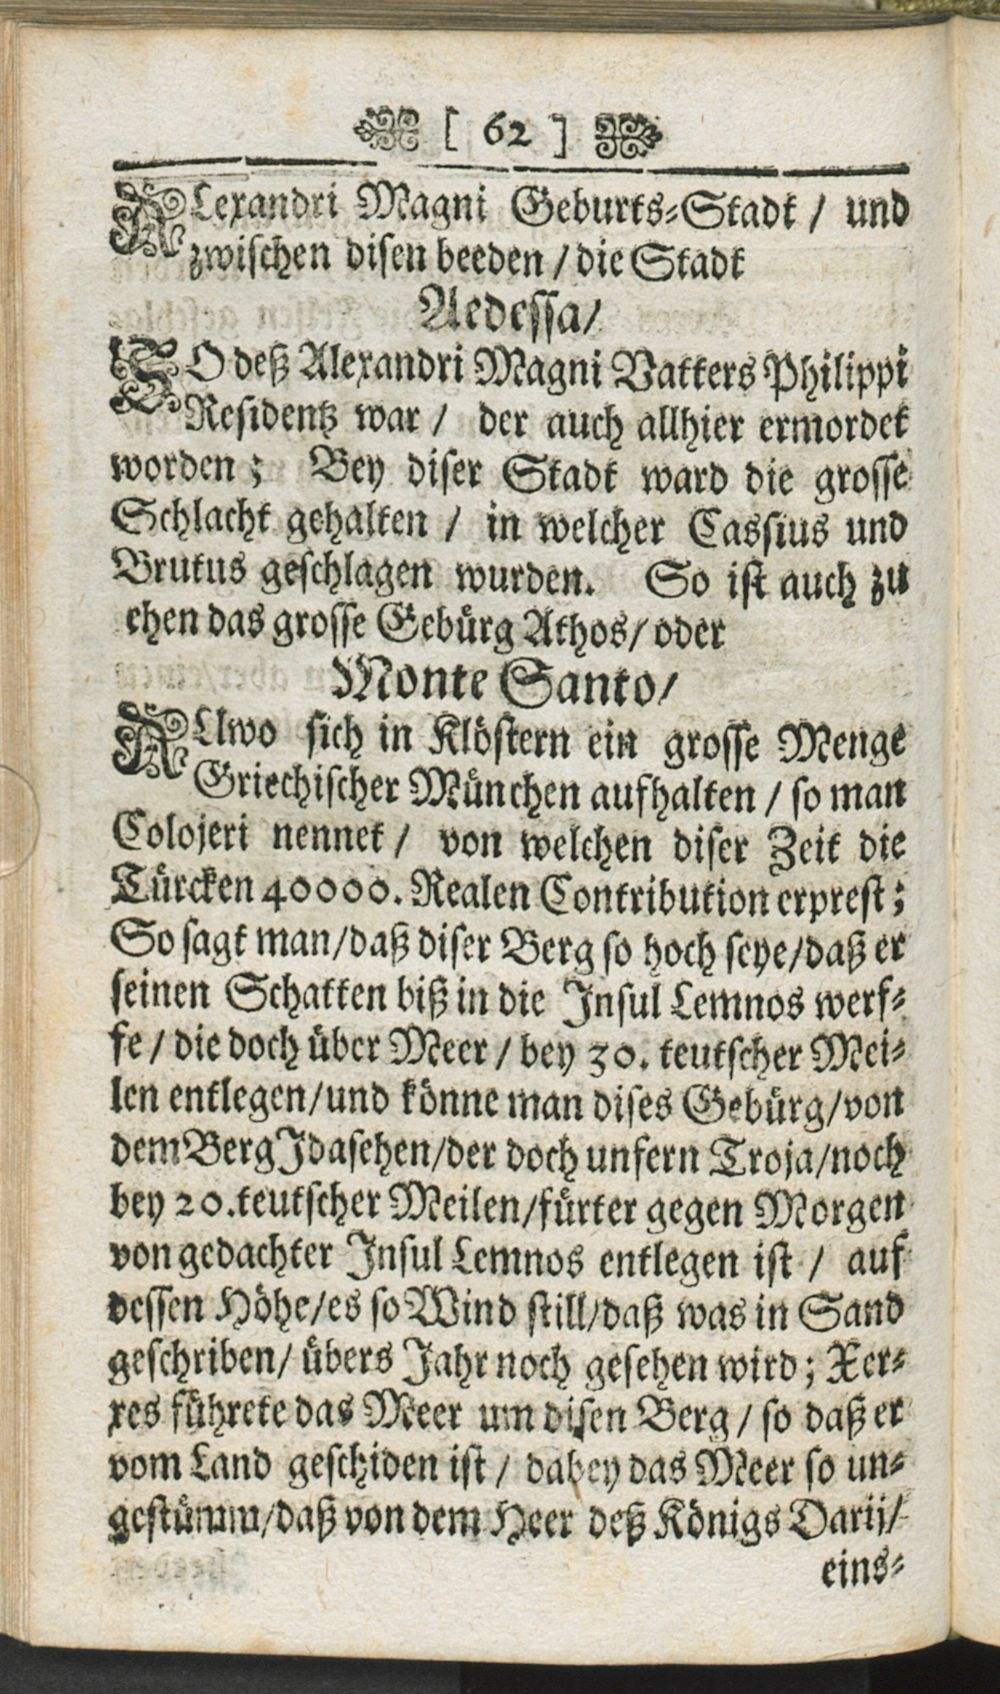 [ 62 ]
ALexandri Magni Geburts-Stadt / und
zwischen disen beeden / die Stadt
Aedessa /
SO deß Alexandri Magni Vatters Philippi
Residentz war / der auch allhier ermordet
worden; Bey diser Stadt ward die grosse
Schlacht gehalten / in welcher Cassius und
Brutus geschlagen wurden. So ist auch zu
ehen das grosse Gebürg Athos / oder
Monte Santo /
ALlwo sich in Klöstern ein grosse Menge
Griechischer München aufhalten / so man
Colojeri nennet / von welchen diser Zeit die
Türcken 40000. Realen Contribution erprest;
So sagt man / daß diser Berg so hoch seye / daß er
seinen Schatten biß in die Insul Lemnos werf-
fe / die doch über Meer / bey 30. teutscher Mei-
len entlegen / und könne man dises Gebürg / von
dem Berg Ida sehen / der doch unfern Troja / noch
bey 20. teutscher Meilen / fürter gegen Morgen
von gedachter Insul Lemnos entlegen ist / auf
dessen Höhe / es so Wind still / daß was in Sand
geschriben / übers Jahr noch gesehen wird; Xer-
xes führete das Meer um disen Berg / so daß er
vom Land geschiden ist / dabey das Meer so un-
gestümm / daß von dem Heer deß Königs Darii /
eins-